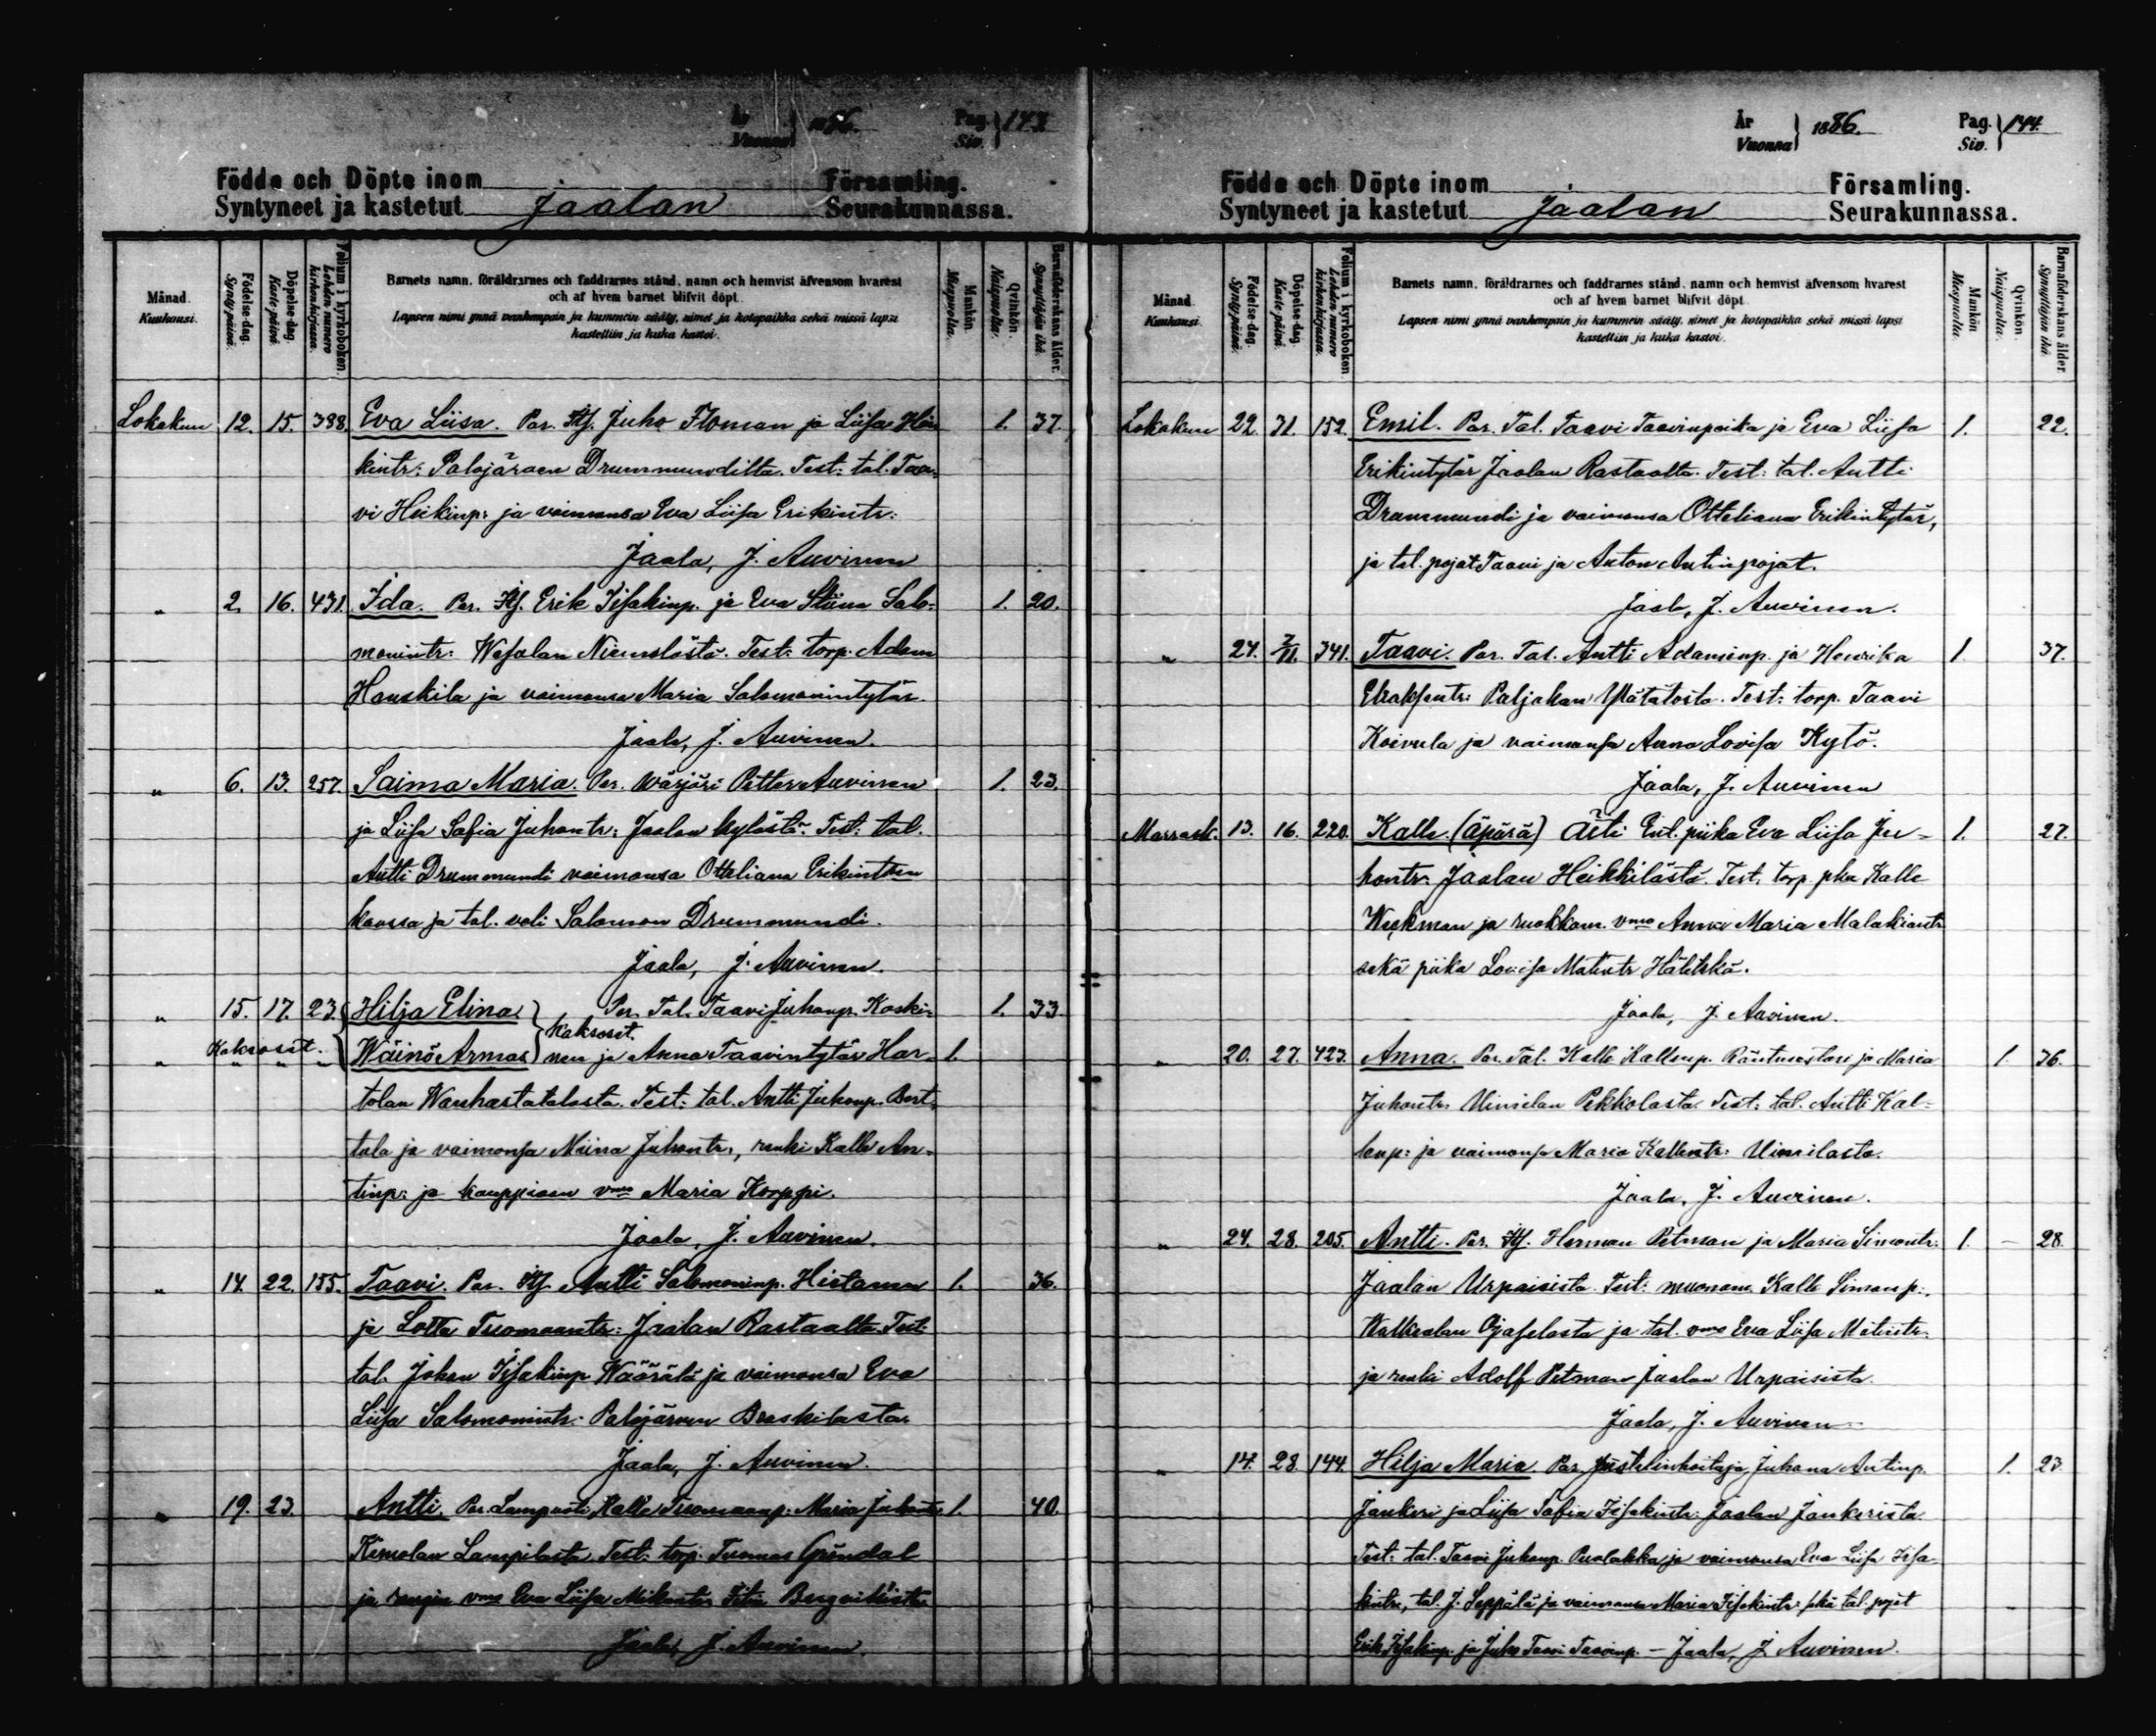 År
Vuonna } 1886.
Pag.
Siv. } 143
Födde och Döpte inom Församling.
Syntyneet ja kastetut Jaalan Seurakunnassa.
Månad.
Kuukausi.
Födelse-dag.
Synty-päivä.
Döpelse-dag.
Kaste-päivä.
Folium i kyrkoboken.
Lehden numero kirkonkirjassa.
Barnets namn, föräldrarnes och faddrarnes stånd, namn och hemvist äfvensom hvarest
och af hvem barnet blifvit döpt.
Lapsen nimi ynnä vanhempain ja kummein sääty, nimet ja kotopaikka sekä missä lapsi
kastettiin ja kuka kastoi.
Mankön.
Miespuolta.
Qvinkön.
Naispuolta.
Barnaföderskans ålder.
Synnyttäjän ikä.
Lokakuu 12. 15. 388. Eva Liisa. Par. Juho Floman ja Liisa Hei 1. 37
kintr: Palojärven Drummundilta. Test: tal. Taa-
vi Heikinp: ja vaimonsa Eva Liisa Erikintr:
Jaala, J. Auvinen
" 2. 16. 431. Ida. Par. Erik Iisakinp. ja Eva Stiina Salo- 1. 20.
monintr: Wesalan Niemelästä. Test: torp. Adam
Hauskila ja vaimonsa Maria Salomonintytär.
Jaala, J. Auvinen.
" 6. 13. 257. Saima Maria. Par. Wärjäri Petter Auvinen 1. 23.
ja Liisa Sofia Juhontr: Jaalan kylästä. Test: tal.
Antti Drummundi vaimonsa Otteliana Erikintren
kanssa ja tal. veli Salomon Drummundi.
Jaala, J. Auvinen.
" 15. 17. 23. Hilja Elina Par. Tal. Taavi Juhonp. Koski- 1. 33
" Kaksoset. Wäinö Armas Kaksoset. nen ja Anna Taavintytär Har- 1.
tolan Wanhastatalosta. Test: tal. Antti Juhonp.
tula ja vaimonsa Miina Juhontr:, renki Kalle An-
tinp: ja kauppiaan vmo Maria Korppi.
Jaala, J. Auvinen.
" 14. 22. 155. Taavi. Par. Antti Salomoninp. Hietanen 1. 36.
ja Lotta Tuomaantr: Jaalan Rastaalta. Test:
tal. Johan Iisakinp. Wäärälä ja vaimonsa Eva
Liisa Salomonintr: Palojärven
Jaala, J. Auvinen.
" 19. 23. Antti. Par. Lampuoti Kalle Tuomaanp. Maria Juhontr 1. 40.
Kimolan Lampilasta. Test: torp. Tuomas Gröndal
ja rengin vmo Eva Liisa
Jaala, J. Auvinen.
År
Vuonna } 1886.
Pag.
Siv. } 144.
Födde och Döpte inom Församling.
Syntyneet ja kastetut Jaalan Seurakunnassa.
Månad.
Kuukausi.
Födelse-dag.
Synty-päivä.
Döpelse-dag.
Kaste-päivä.
Folium i kyrkoboken.
Lehden numero kirkonkirjassa.
Barnets namn, föräldrarnes och faddrarnes stånd, namn och hemvist äfvensom hvarest
och af hvem barnet blifvit döpt.
Lapsen nimi ynnä vanhempain ja kummein sääty, nimet ja kotopaikka sekä missä lapsi
kastettiin ja kuka kastoi.
Mankön.
Miespuolta.
Qvinkön.
Naispuolta.
Barnaföderskans ålder.
Synnyttäjän ikä.
Lokakuu 22. 31. 152. Emil. Par. Tal. Taavi Taavinpoika ja Eva Liisa 1. 22.
Erikintytär Jaalan Rastaalta. Test: tal. Antti
Drummundi ja vaimonsa Otteliana Erikintytär,
ja tal. pojat Taavi ja Anton Antinpojat.
Jaala, J. Auvinen.
" 24. 7/11. 341. Taavi. Par. Tal. Antti Adaminp. ja Henrika 1. 37.
Paljakan Mätätosta. Test: torp. Taavi
Koivula ja vaimonsa Anna Lovisa Kytö.
Jaala, J. Auvinen
Marrask. 13. 16. 220. Kalle. (äpärä) Äiti: piika Eva Liisa Ju- 1. 27.
hontr: Jaalan Heikkilästä. Test. torp. pka Kalle
Weckman ja ruokkom. vmo Anna Maria Malakiantr
sekä piika Lovisa Matintr
Jaala, J. Auvinen.
" 20. 27. 423. Anna. Par. Tal. Kalle Kallenp. ja Maria 1. 36.
Juhontr. Uimilan Pekkolasta. Test: tal. Antti Kal-
lenp: ja vaimonsa Maria Kallentr: Uimilasta.
Jaala, J. Auvinen.
" 24. 28. 205. Antti. Par. Herman Petman ja Maria Simontr: 1. - 28.
Jaalan Urpaisista. Test: muonam. Kalle Simonp:,
Walkealan Ojaselasta ja tal. vmo Eva Liisa Matintr:
ja renki Adolf Petman Jaalan Urpaisista.
Jaala, J. Auvinen.
" 14. 28. 144. Hilja Maria. Par. Juhana Antinp. 1. 23
Junkeri ja Liisa Sofia Iisakintr: Jaalan Junkerista.
Test: tal. Taavi Juhonp. Puolakka ja vaimonsa Eva Liisa Iisa-
kintr:, tal. J. Seppälä ja vaimonsa Maria Iisakintr: sekä tal. pojat
Erik Iisakinp. ja Juho Taavi Taavinp. — Jaala, J. Auvinen.